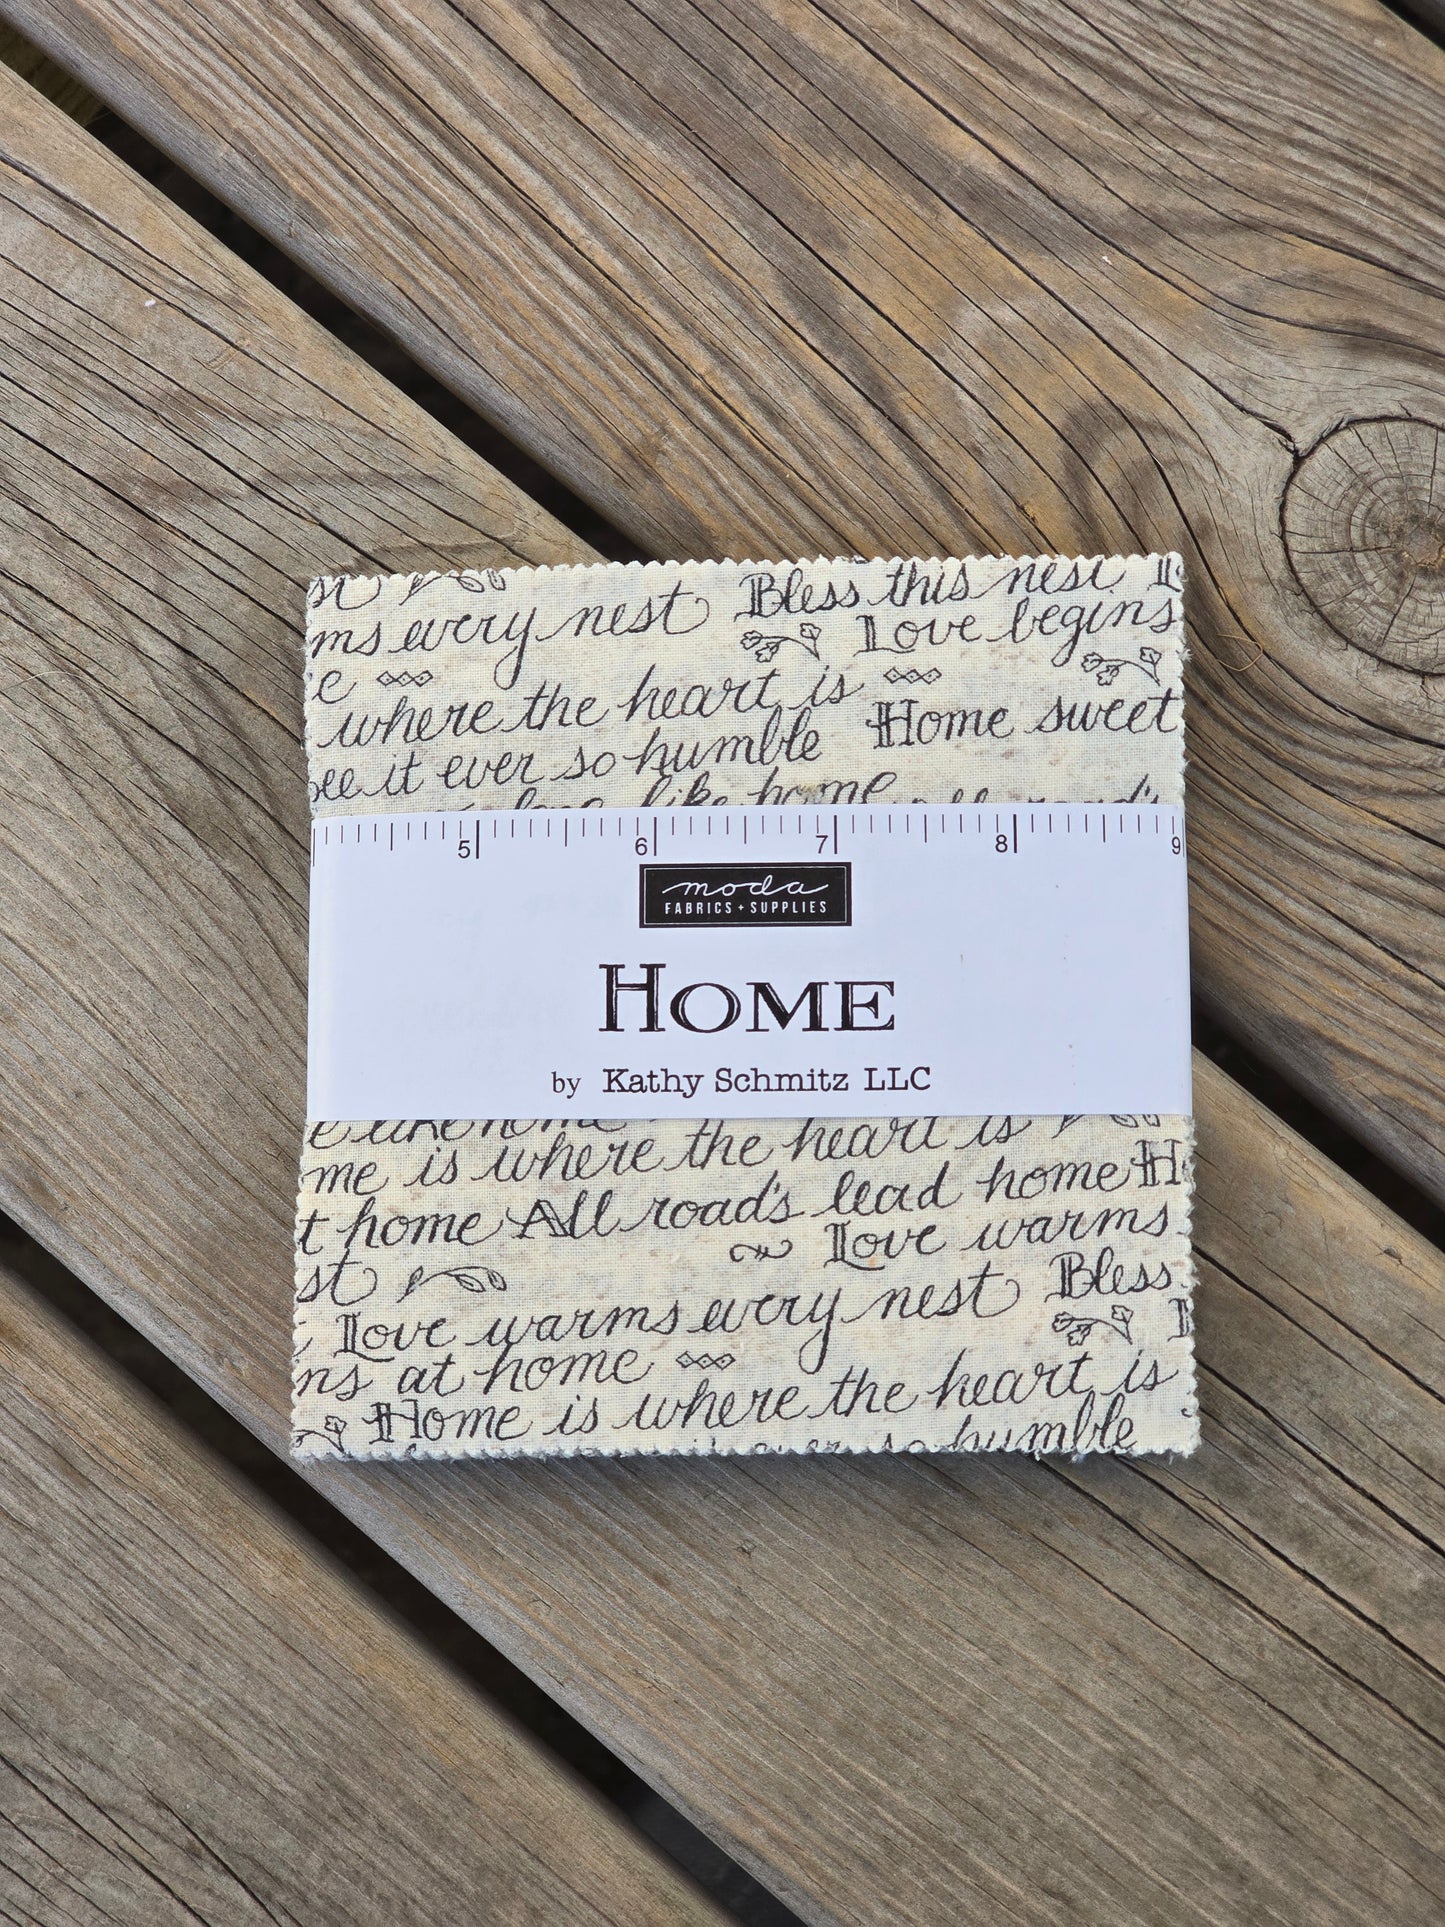 Bless this nest
ms every nest
Love begins
e
where the heart is
Home sweet
ee it ever so humble
like home
all road's
5 6 7 8 9
moda
FABRICS + SUPPLIES
HOME
by Kathy Schmitz LLC
e like home
me is where the heart is
t home All road's lead home H
Love warms
st
Bless
Love warms every nest
ns at home
Home is where the heart is
ever so humble